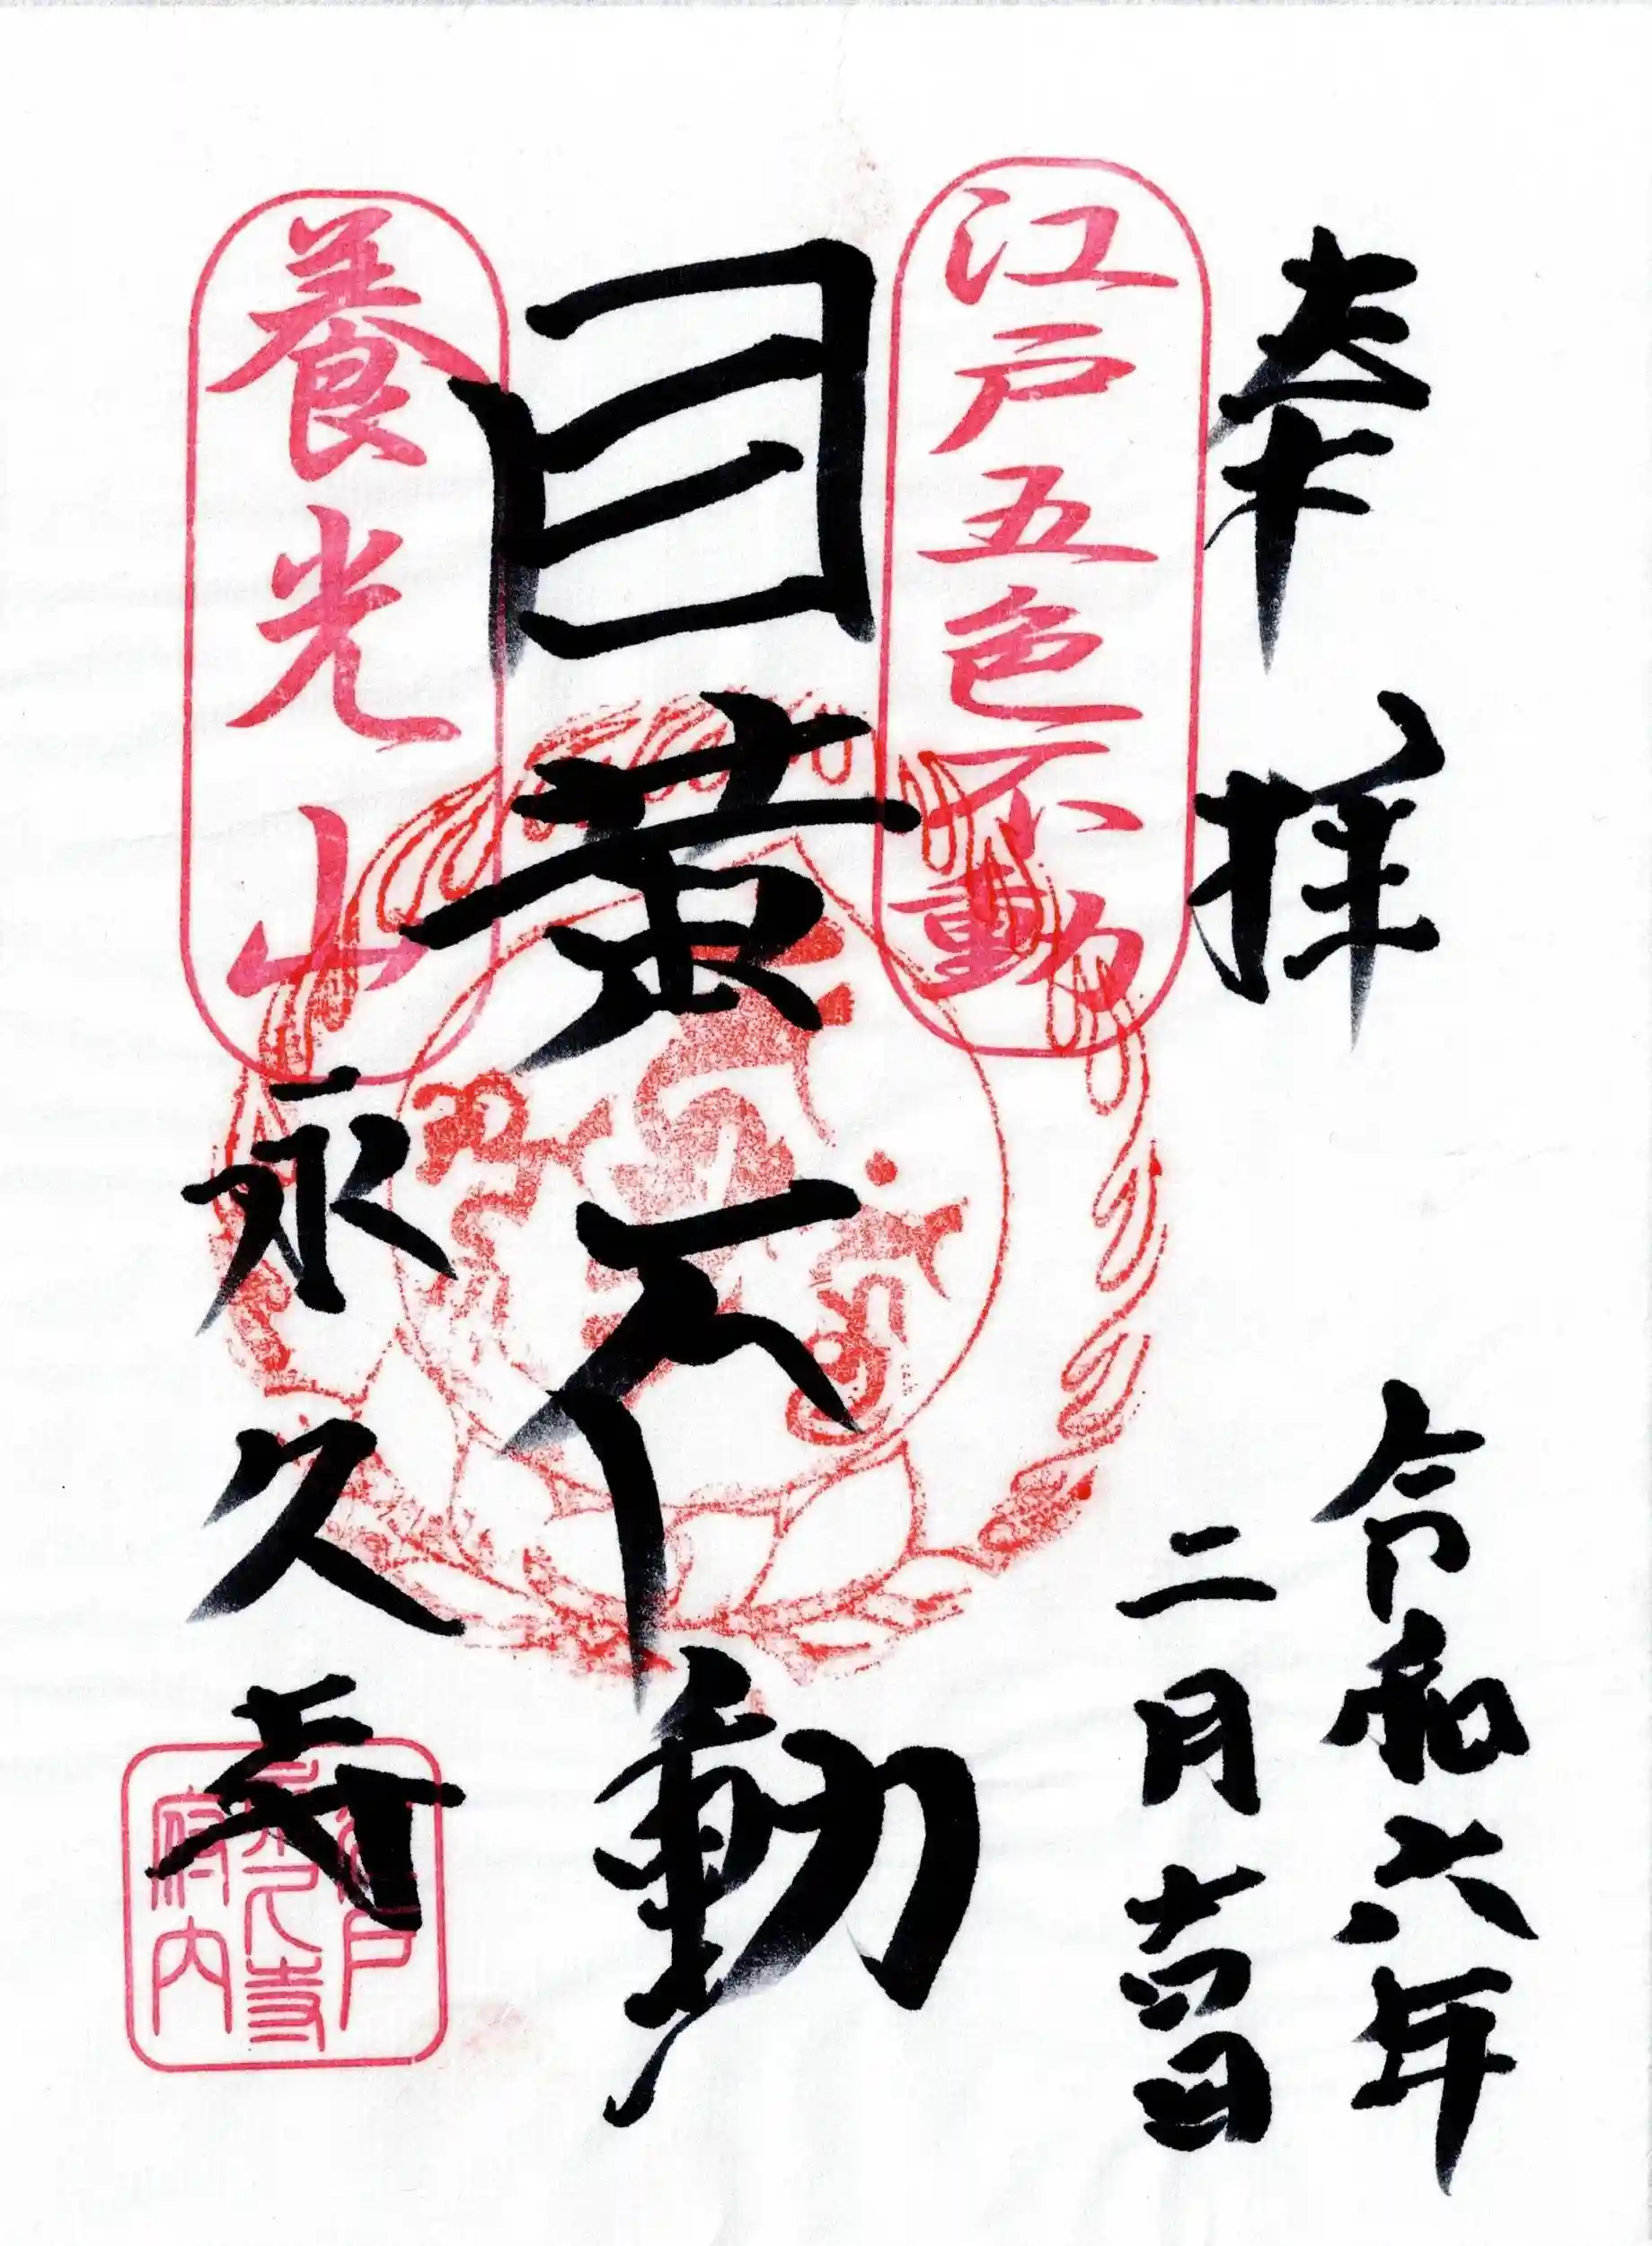 奉拝
令和六年
二月十四日
江戸五色不動
目黄不動
養光山
永久寺
江戸
永久寺
府内